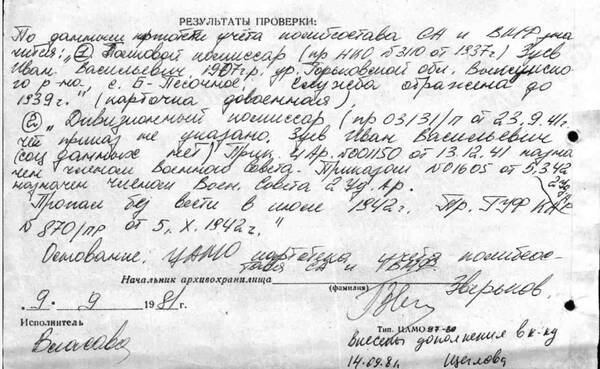 РЕЗУЛЬТАТЫ ПРОВЕРКИ:
По данным картотеки учёта политсостава СА и ВМФ зна
чится: „① Полковой комиссар (пр НКО №3110 от 1937г) Зуев
Иван Васильевич, 1907г.р. ур. Горьковской обл. Выксунско
го р-на. с. Б-Песочное, Служба отражена до
1939г." (карточка довоенная)
② „Дивизионный комиссар (пр 03131/п от 23.9.41г.
чей приказ не указано. Зуев Иван Васильевич
(соц данных нет) Прик. 4Ар. №00150 от 13.12.41 назна
чен членом военного совета. Приказом №01605 от 5.3.42
назначен членом Воен. Совета 2 Уд. Ар.
"Пропал без вести в июле 1942г. Пр. ГУФ КА
№ 870/пр от 5. X. 1942г."
Основание: ЦАМО картотека учёта политсос-
тава СА и ВМФ.
Начальник архивохранилища
(фамилия)
Зверьков
„ 9 - 9 1981г.
Исполнитель
Власова
Тип. ЦАМО 97-80
Внесены дополнения в к-ку
14.09.81 Щеглова